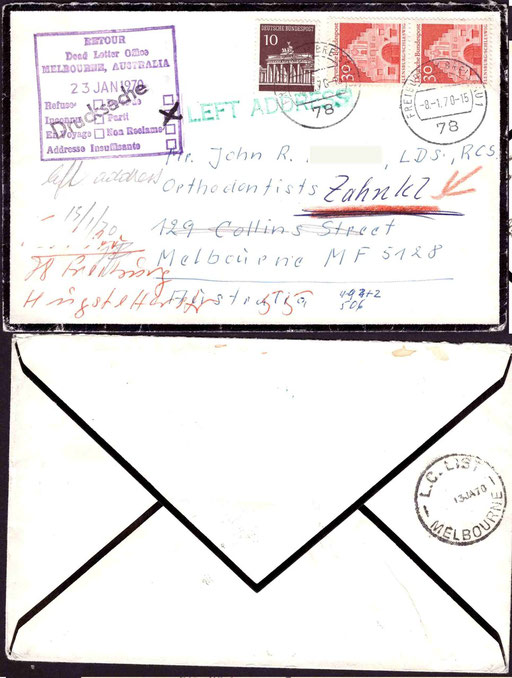 RETOUR
Dead Letter Office
MELBOURNE, AUSTRALIA
23 JAN 1970
Refuse
Inconnu Parti
En Voyage Non Reclame
Addresse Insuffisante
Drucksache
10 DEUTSCHE BUNDESPOST
30
30
FREIBURG
78
-8.-1.70-15
78
LEFT ADDRESS
left address
Mr. John R. LDS., RCS.
Orthodontists Zahnkl
129 Collins Street
Melbourne MF 5128
Australia
15/1/70
78 Freiburg
Hugstetter 55
493+2
506
L.C. LIST
13JA70
MELBOURNE